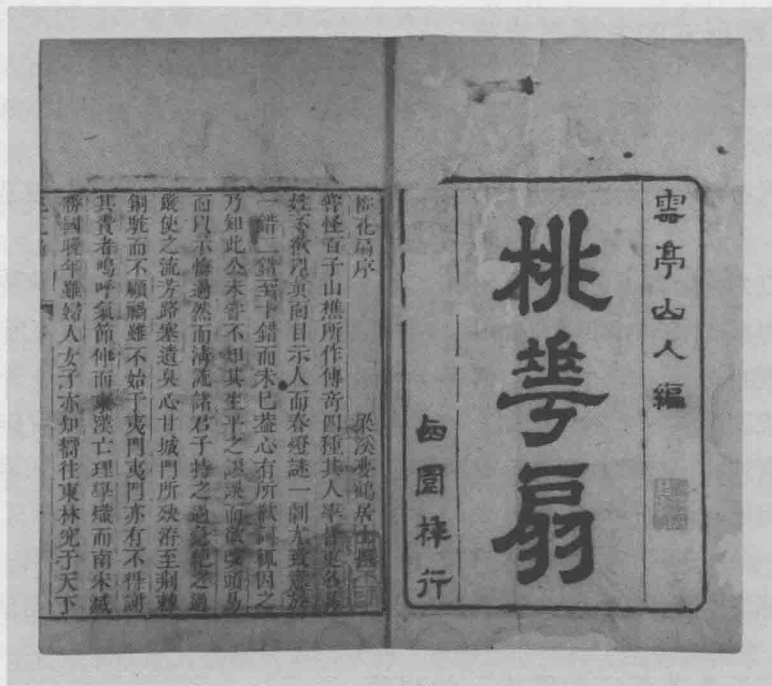 雲亭山人編
桃華扇
西園梓行
桃花扇序 梁溪夢鶴居士撰
嘗怪百子山樵所作傳奇四種其人率皆更名易
姓不欲以眞面目示人而春燈謎一劇尤致意於
一錯二錯至十錯而未已蓋心有所歉詞輒因之
乃知此公未嘗不知其生平之謬誤而欲改頭易
面以示悔過然而清流諸君子持之過急絕之過
嚴使之流芳路塞遺臭心甘城門所殃洊至荆棘
銅駝而不顧禍雖不始于夷門夷門亦有不得謝
其責者嗚呼氣節伸而東漢亡理學熾而南宋滅
勝國晚年雖婦人女子亦知嚮往東林究于天下